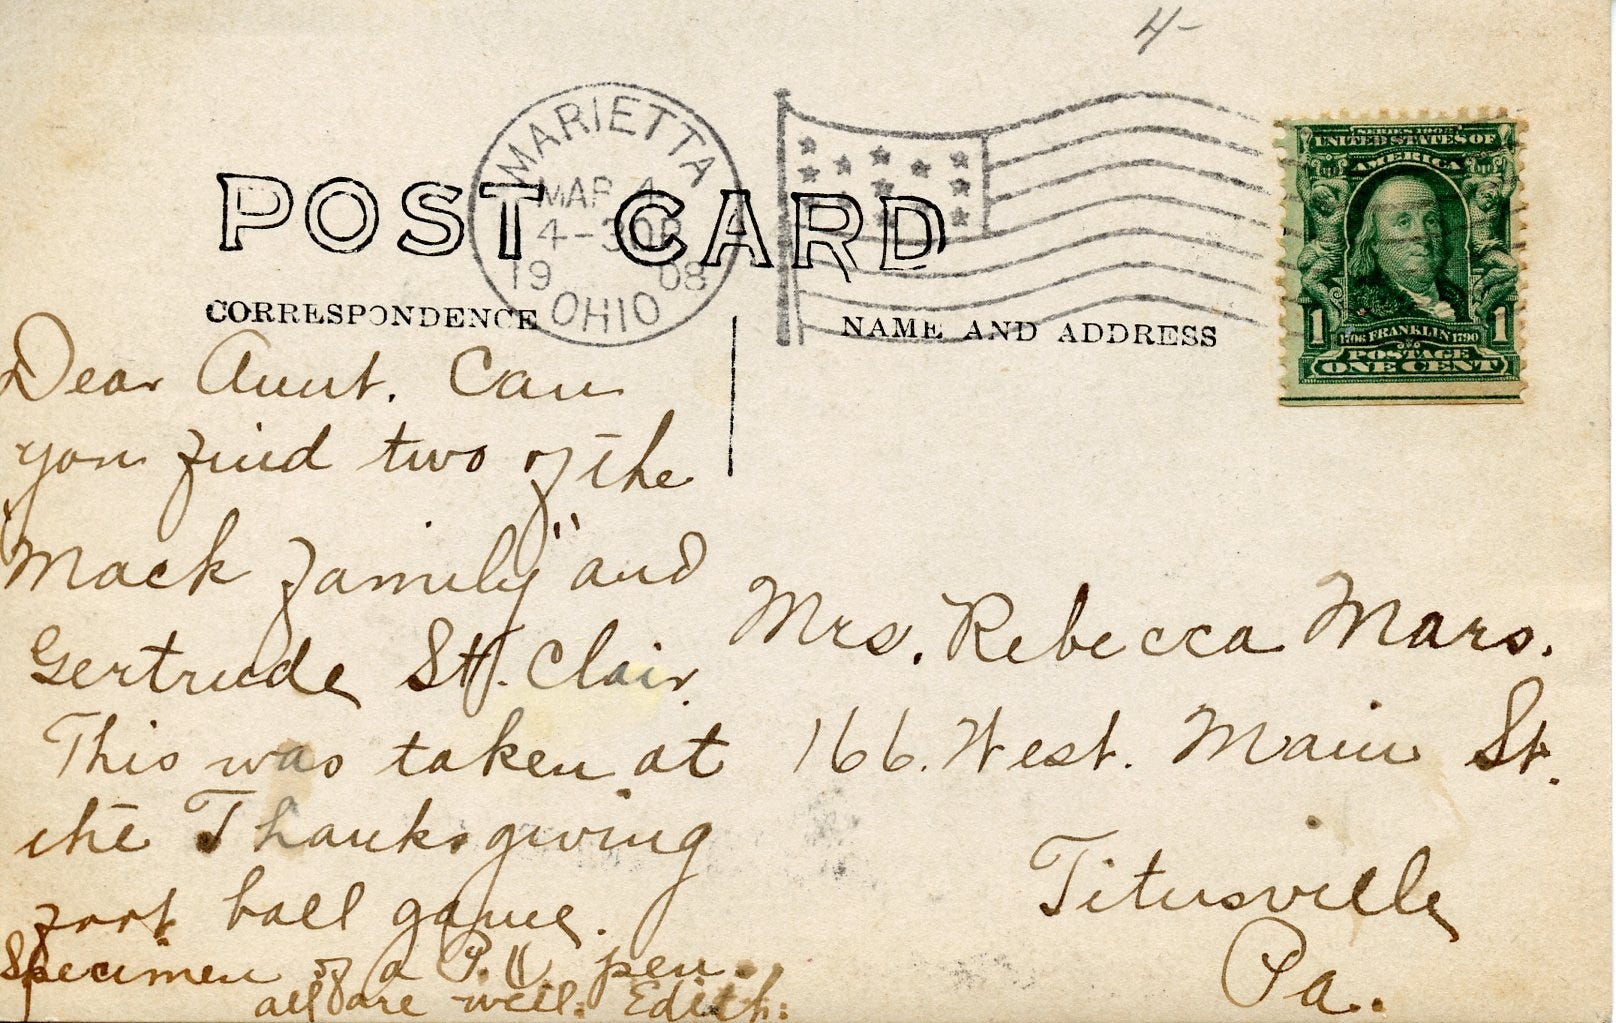 4-
MARIETTA
MAR 4
4-30P
1908
OHIO
POST CARD
CORRESPONDENCE
NAME AND ADDRESS
SERIES 1902
UNITED STATES OF
AMERICA
1 1
1706 FRANKLIN 1790
POSTAGE
ONE CENT
Dear Aunt. Can
you find two of the
"Mack family" and
Gertrude St. Clair.
This was taken at
the Thanksgiving
foot ball game.
Specimen of a P. pen.
all are well. Edith.
Mrs. Rebecca Mars.
166. West. Main St.
Titusville
Pa.